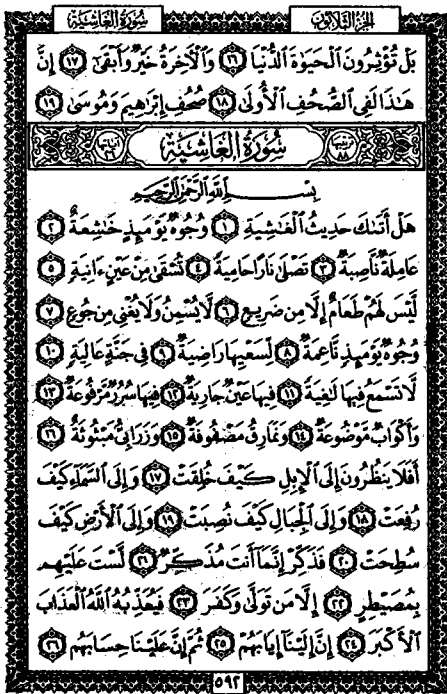 الجزء الثلاثون
سورة الغاشية
بَلْ تُؤْثِرُونَ ٱلْحَيَوٰةَ ٱلدُّنْيَا ١٦ وَٱلْءَاخِرَةُ خَيْرٌ وَأَبْقَىٰٓ ١٧ إِنَّ
هَٰذَا لَفِى ٱلصُّحُفِ ٱلْأُولَىٰ ١٨ صُحُفِ إِبْرَٰهِيمَ وَمُوسَىٰ ١٩
ترتيبها ٨٨ سُورَةُ الغَاشِيَةِ آياتها ٢٦
بِسْمِ ٱللَّهِ ٱلرَّحْمَٰنِ ٱلرَّحِيمِ
هَلْ أَتَىٰكَ حَدِيثُ ٱلْغَٰشِيَةِ ١ وُجُوهٌ يَوْمَئِذٍ خَٰشِعَةٌ ٢
عَامِلَةٌ نَّاصِبَةٌ ٣ تَصْلَىٰ نَارًا حَامِيَةً ٤ تُسْقَىٰ مِنْ عَيْنٍ ءَانِيَةٍ ٥
لَّيْسَ لَهُمْ طَعَامٌ إِلَّا مِن ضَرِيعٍ ٦ لَّا يُسْمِنُ وَلَا يُغْنِى مِن جُوعٍ ٧
وُجُوهٌ يَوْمَئِذٍ نَّاعِمَةٌ ٨ لِّسَعْيِهَا رَاضِيَةٌ ٩ فِى جَنَّةٍ عَالِيَةٍ ١٠
لَّا تَسْمَعُ فِيهَا لَٰغِيَةً ١١ فِيهَا عَيْنٌ جَارِيَةٌ ١٢ فِيهَا سُرُرٌ مَّرْفُوعَةٌ ١٣
وَأَكْوَابٌ مَّوْضُوعَةٌ ١٤ وَنَمَارِقُ مَصْفُوفَةٌ ١٥ وَزَرَابِىُّ مَبْثُوثَةٌ ١٦
أَفَلَا يَنظُرُونَ إِلَى ٱلْإِبِلِ كَيْفَ خُلِقَتْ ١٧ وَإِلَى ٱلسَّمَآءِ كَيْفَ
رُفِعَتْ ١٨ وَإِلَى ٱلْجِبَالِ كَيْفَ نُصِبَتْ ١٩ وَإِلَى ٱلْأَرْضِ كَيْفَ
سُطِحَتْ ٢٠ فَذَكِّرْ إِنَّمَآ أَنتَ مُذَكِّرٌ ٢١ لَّسْتَ عَلَيْهِم
بِمُصَيْطِرٍ ٢٢ إِلَّا مَن تَوَلَّىٰ وَكَفَرَ ٢٣ فَيُعَذِّبُهُ ٱللَّهُ ٱلْعَذَابَ
ٱلْأَكْبَرَ ٢٤ إِنَّ إِلَيْنَآ إِيَابَهُمْ ٢٥ ثُمَّ إِنَّ عَلَيْنَا حِسَابَهُم ٢٦
٥٩٢